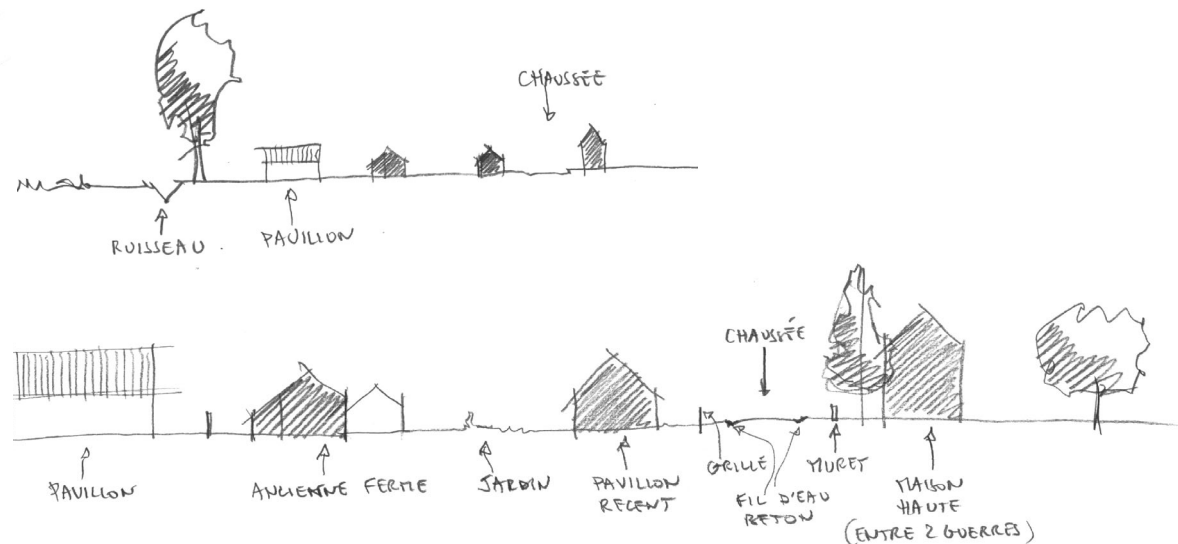 CHAUSSÉE
RUISSEAU
PAVILLON
CHAUSSÉE
PAVILLON
ANCIENNE FERME
JARDIN
PAVILLON
RECENT
GRILLE
FIL D'EAU
BETON
MURET
MAISON
HAUTE
(ENTRE 2 GUERRES)